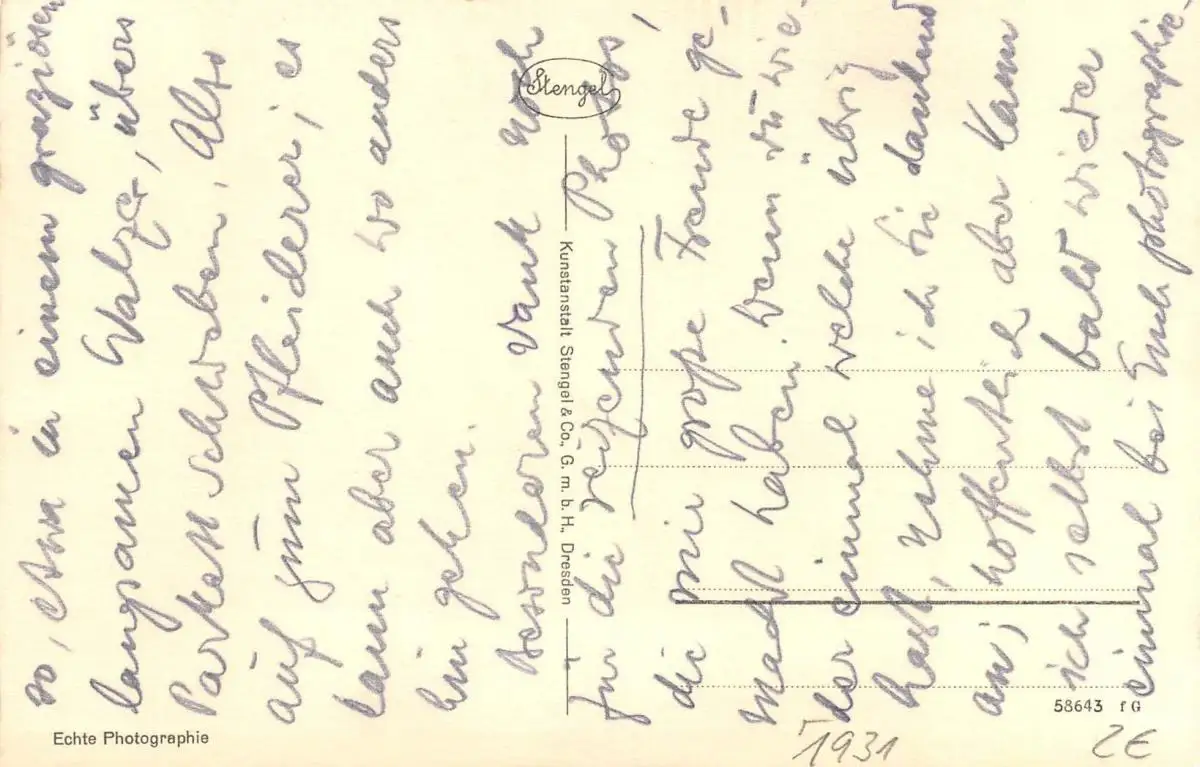 so, etwa in einem graziösen
langsamen Walzer, übers
Parkett schweben. Also
auf zum Pfleiderer; es
kann aber auch wo anders
hin gehen.
Besonderen Dank noch
für die reizenden Photos!
die mir große Freude ge-
macht haben. Wenn du wie-
der einmal welche übrig
hast, nehme ich sie dankend
an; hoffentlich aber kann
ich selbst bald wieder
einmal bei Euch photographie-
Stengel
Kunstanstalt Stengel & Co., G. m. b. H., Dresden
58643 f G
Echte Photographie
1931
2€